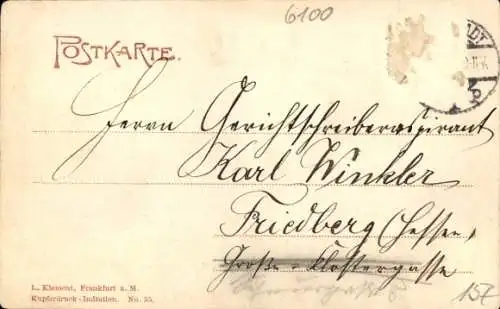 6100
POSTKARTE.
Herrn Gerichtschreiberaspirant
Karl Winkler
Friedberg (Hessen)
Große-Klostergasse
L. Klement, Frankfurt a. M.
Kupferdruck-Imitation. No. 55.
157